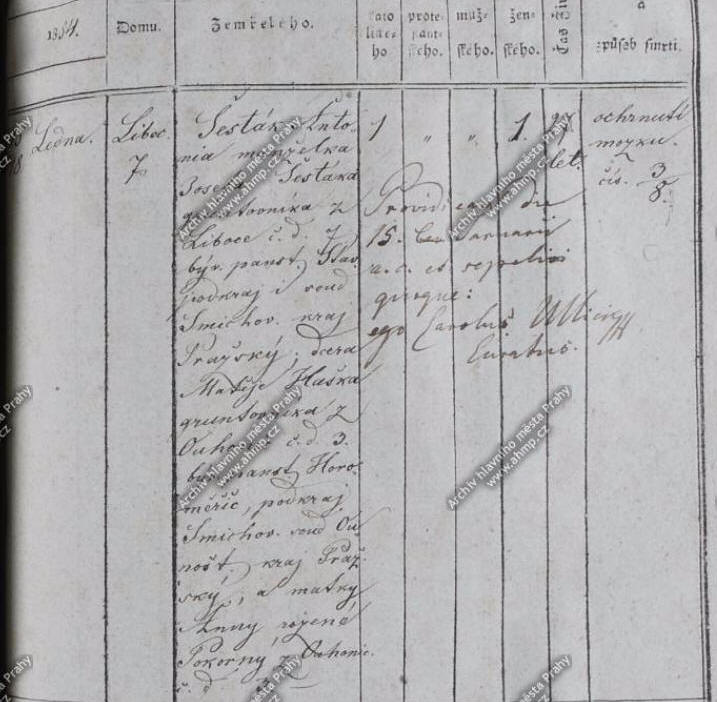 1854.
Domu.
Zemřelého.
kato
licke-
ho
prote-
stant-
ského.
muž-
ského.
žen-
ského.
způsob smrti.
Ledna.
Liboc.
7
Šesták Anto-
nia manželka
Josefa Šestáka
gruntovníka z
Liboce č. d. 7
býv. panst.
podkraj i soud
Smíchov. kraj
Pražský, dcera
Matěje Haška
gruntovníka z
č. d. 3.
panst. Horo-
měřic, podkraj.
Smíchov. soud Ou-
nošt. kraj Praž-
ský, a matky
Anny rozené
Pokorný z Ouhonic.
č. d
1
„
„
1
let.
ochrnutí
mozku.
čís. 3/8.
Provid
15. Januarii
a. c. et sepelivi
quoque:
ego Carolus
Curatus.
Archiv hlavního města Prahy
www.ahmp.cz